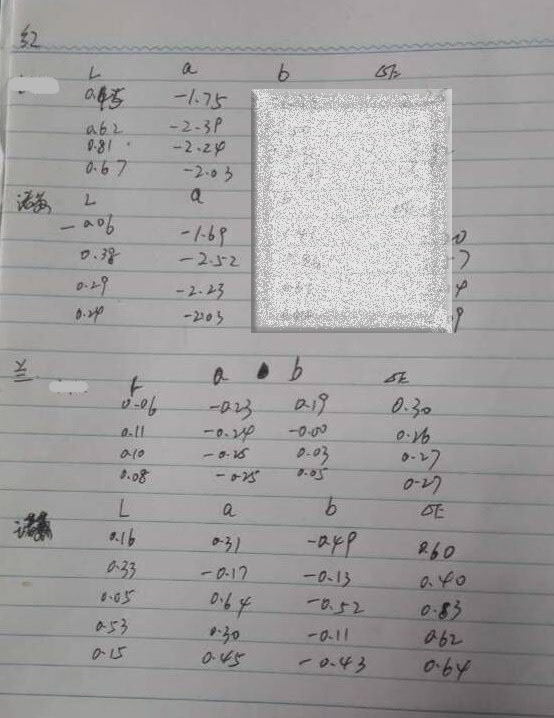 红
L a b ΔE
-1.75
0.62 -2.39
0.81 -2.24
0.67 -2.03
L a
-0.06 -1.69
0.38 -2.52
0.29 -2.23
0.24 -2.03
兰
L a b ΔE
0.06 -0.23 0.19 0.30
0.11 -0.24 -0.00 0.26
0.10 -0.25 0.03 0.27
0.08 -0.25 0.05 0.27
L a b ΔE
0.16 0.31 -0.49 0.60
0.33 -0.17 -0.13 0.40
0.05 0.64 -0.52 0.83
0.53 0.30 -0.11 0.62
0.15 0.45 -0.43 0.64